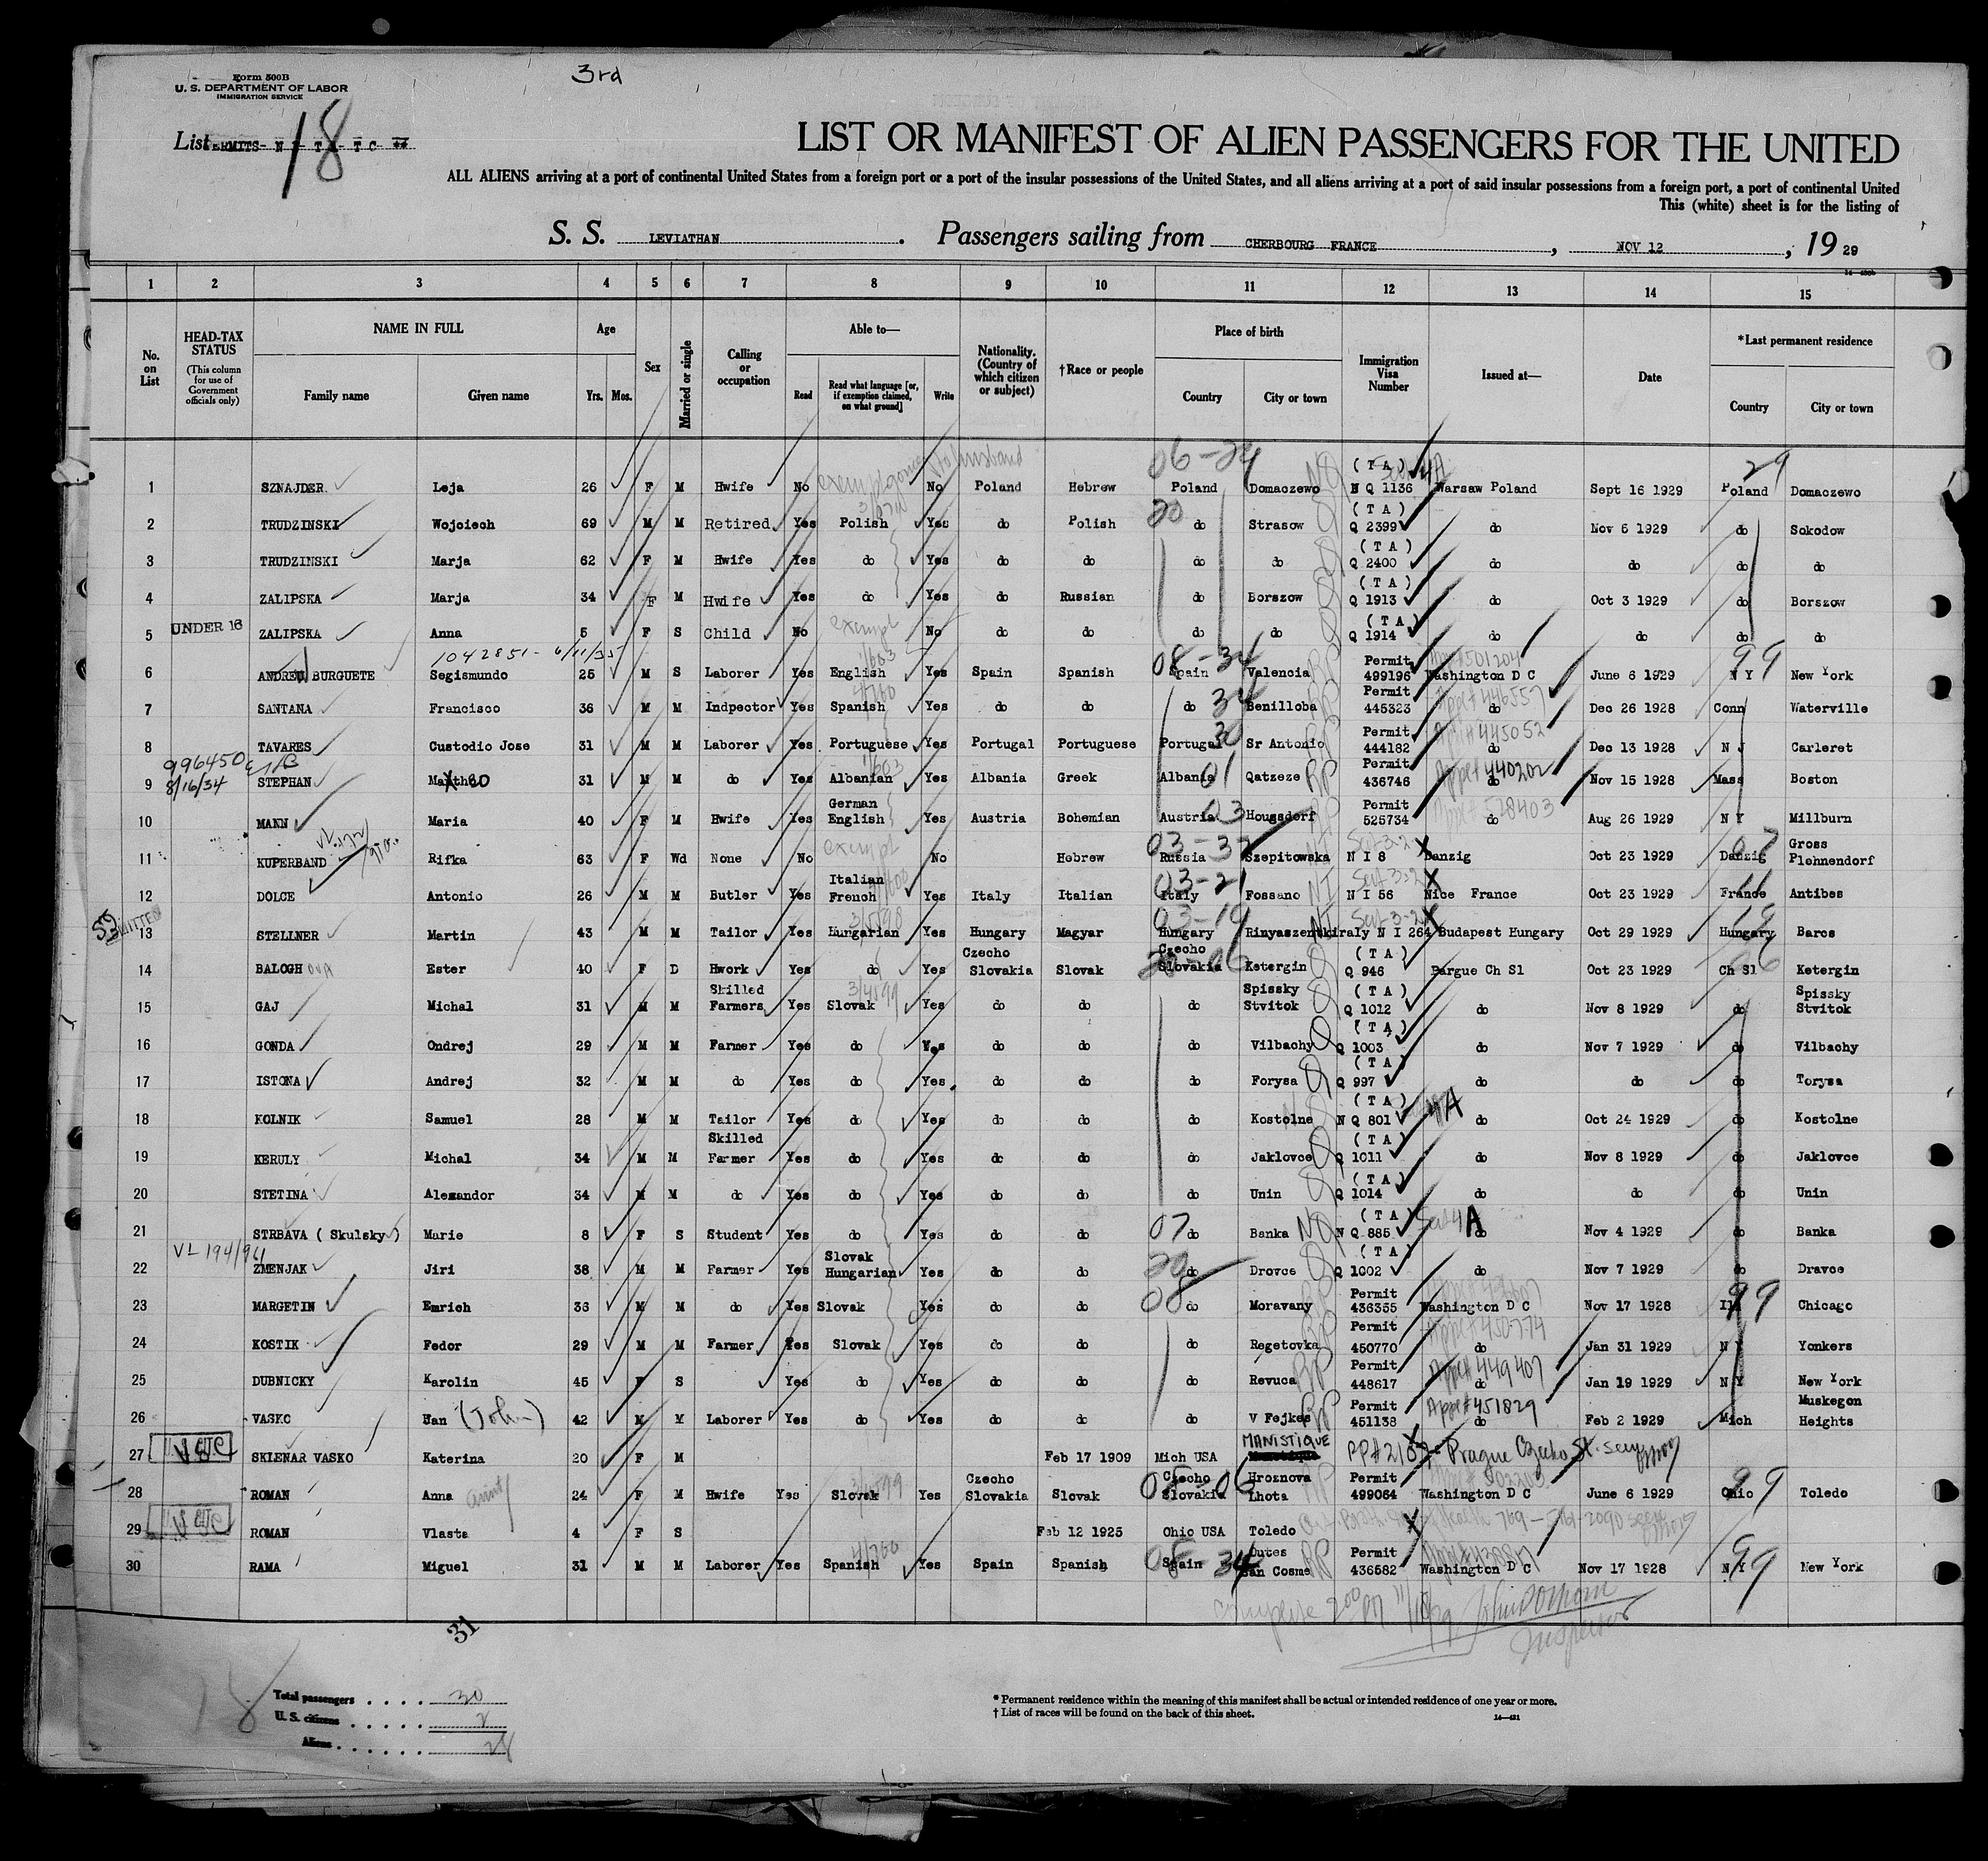 Form 500B
U. S. DEPARTMENT OF LABOR
IMMIGRATION SERVICE
3rd
List 18
LIST OR MANIFEST OF ALIEN PASSENGERS FOR THE UNITED
ALL ALIENS arriving at a port of continental United States from a foreign port or a port of the insular possessions of the United States, and all aliens arriving at a port of said insular possessions from a foreign port, a port of continental United
This (white) sheet is for the listing of
S. S. LEVIATHAN. Passengers sailing from CHERBOURG FRANCE, NOV 12, 19 29
1 2 3 4 5 6 7 8 9 10 11 12 13 14 15
No. on List
HEAD-TAX STATUS
(This column for use of Government officials only)
NAME IN FULL
Family name Given name
Age
Yrs. Mos.
Sex
Married or single
Calling or occupation
Able to—
Read
Read what language [or, if exemption claimed, on what ground]
Write
Nationality. (Country of which citizen or subject)
†Race or people
Place of birth
Country City or town
Immigration Visa Number
Issued at—
Date
*Last permanent residence
Country City or town
1 SZNAJDER Leja 26 F M Hwife No No Poland Hebrew Poland Domaczewo (T A) N Q 1136 Warsaw Poland Sept 16 1929 Poland Domaczewo
2 TRUDZINSKI Wojciech 69 M M Retired Yes Polish Yes do Polish do Strasow (T A) Q 2399 do Nov 6 1929 do Sokodow
3 TRUDZINSKI Marja 62 F M Hwife Yes do Yes do do do do (T A) Q 2400 do do do do
4 ZALIPSKA Marja 34 F M Hwife Yes do Yes do Russian do Borszow (T A) Q 1913 do Oct 3 1929 do Borszow
5 UNDER 16 ZALIPSKA Anna 5 F S Child No exempt No do do do do (T A) Q 1914 do do do do
1042851 - 6/11/35
6 ANDREU BURGUETE Segismundo 25 M S Laborer Yes English Yes Spain Spanish Spain Valencia Permit 499196 Washington D C June 6 1929 N Y New York
7 SANTANA Francisco 36 M M Indpector Yes Spanish Yes do do do Benilloba Permit 445323 do Dec 26 1928 Conn Waterville
8 TAVARES Custodio Jose 31 M M Laborer Yes Portuguese Yes Portugal Portuguese Portugal Sr Antonio Permit 444182 do Dec 13 1928 N J Carleret
996450
8/16/34
9 STEPHAN 31 M M do Yes Albanian Yes Albania Greek Albania Qatzeze Permit 436746 do Nov 15 1928 Mass Boston
10 MANN Maria 40 F M Hwife Yes German English Yes Austria Bohemian Austria Hougsdorf Permit 525734 do Aug 26 1929 N Y Millburn
11 KUPERBAND Rifka 63 F Wd None No exempt No Hebrew Russia Szepitowska N I 8 Danzig Oct 23 1929 Danzig Gross Plehnendorf
12 DOLCE Antonio 26 M M Butler Yes Italian French Yes Italy Italian Italy Fossano N I 56 Nice France Oct 23 1929 France Antibes
13 STELLNER Martin 43 M M Tailor Yes Hungarian Yes Hungary Magyar Hungary Rinyaszentkiraly N I 264 Budapest Hungary Oct 29 1929 Hungary Barcs
14 BALOGH OVA Ester 40 F D Hwork Yes do Yes Czecho Slovakia Slovak Czecho Slovakia Ketergin (T A) Q 946 Pargue Ch Sl Oct 23 1929 Ch Sl Ketergin
15 GAJ Michal 31 M M Skilled Farmers Yes Slovak Yes do do do Spissky Stvitok (T A) Q 1012 do Nov 8 1929 do Spissky Stvitok
16 GONDA Ondrej 29 M M Farmer Yes do Yes do do do Vilbachy (T A) Q 1003 do Nov 7 1929 do Vilbachy
17 ISTONA Andrej 32 M M do Yes do Yes do do do Forysa (T A) Q 997 do do do Torysa
18 KOLNIK Samuel 28 M M Tailor Yes do Yes do do do Kostolne (T A) N Q 801 do Oct 24 1929 do Kostolne
19 KERULY Michal 34 M M Skilled Farmer Yes do Yes do do do Jaklovce (T A) Q 1011 do Nov 8 1929 do Jaklovce
20 STETINA Alexandor 34 M M do Yes do Yes do do do Unin (T A) Q 1014 do do do Unin
21 STRBAVA (Skulsky) Marie 8 F S Student Yes do Yes do do do Banka (T A) N Q 885 do Nov 4 1929 do Banka
22 ZMENJAK Jiri 38 M M Farmer Yes Slovak Hungarian Yes do do do Drovce (T A) Q 1002 do Nov 7 1929 do Dravce
23 MARGETIN Emrich 36 M M do Yes Slovak Yes do do do Moravany Permit 436355 Washington D C Nov 17 1928 Ill Chicago
24 KOSTIK Fedor 29 M M Farmer Yes Slovak Yes do do do Regetovka Permit 450770 do Jan 31 1929 N Y Yonkers
25 DUBNICKY Karolin 45 F S Yes do Yes do do do Revuca Permit 448617 Appl# 449407 do Jan 19 1929 N Y New York
26 VASKO Jan (John) 42 M M Laborer Yes do Yes do do do V Fejkes Permit 451138 Appl# 451829 do Feb 2 1929 Mich Muskegon Heights
27 SKLENAR VASKO Katerina 20 F M Feb 17 1909 Mich USA MANISTIQUE
28 ROMAN Anna 24 F M Hwife Yes Slovak Yes Czecho Slovakia Slovak Czecho Slovakia Hroznova Lhota Permit 499064 Washington D C June 6 1929 Ohio Toledo
29 ROMAN Vlasta 4 F S Feb 12 1925 Ohio USA Toledo
30 RAMA Miguel 31 M M Laborer Yes Spanish Yes Spain Spanish Spain Outes San Cosme Permit 436582 Washington D C Nov 17 1928 N Y New York
31
Inspector
18
Total passengers . . . . 30
U. S. citizens . . . . . 2
Aliens . . . . . . 28
* Permanent residence within the meaning of this manifest shall be actual or intended residence of one year or more.
† List of races will be found on the back of this sheet.
14—421